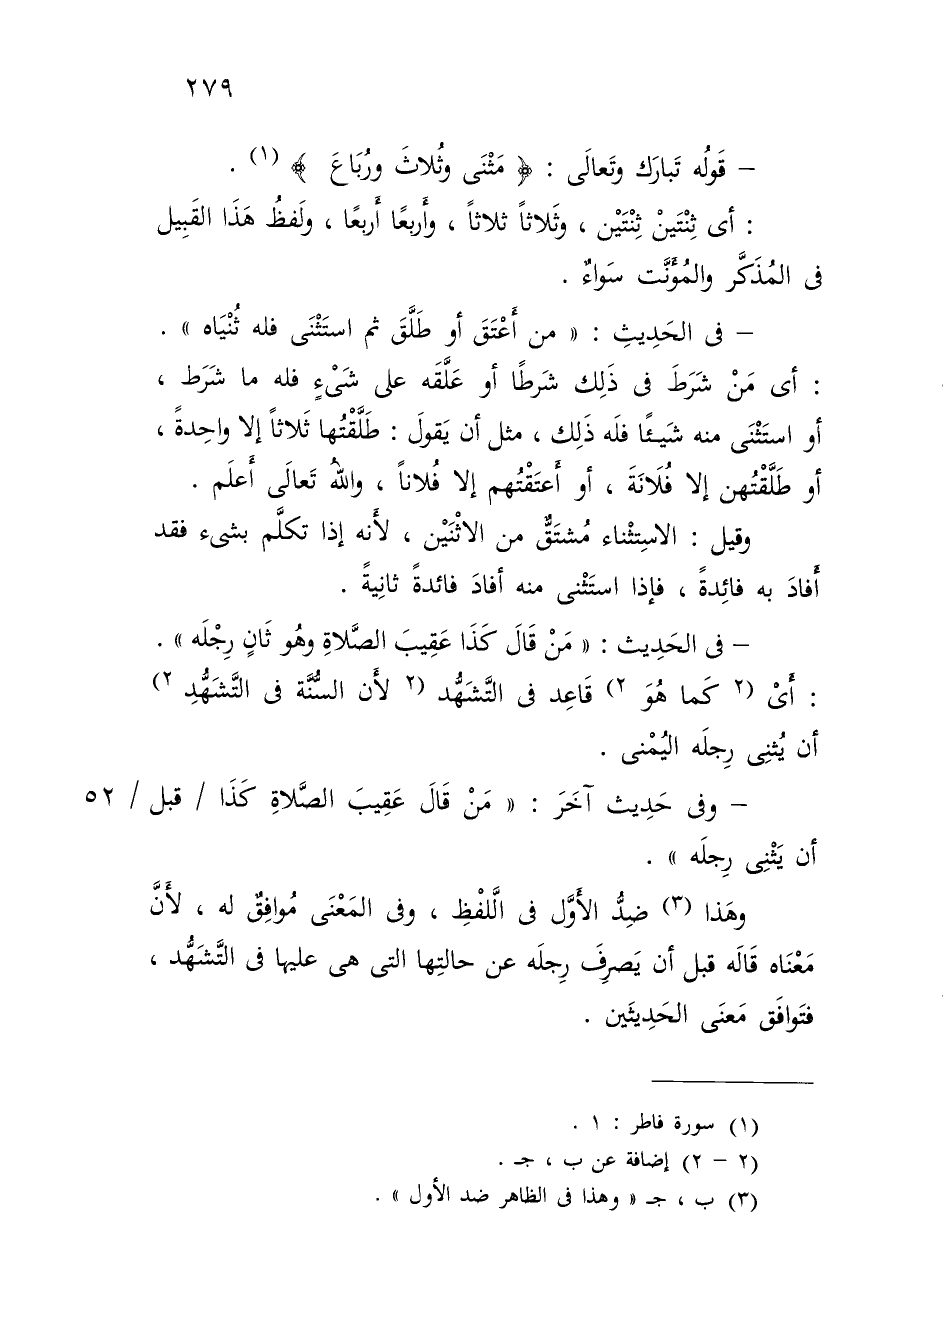 ٢٧٩
– قَولُه تَبارَك وتَعالَى : ﴿ مَثْنَى وثُلاثَ ورُبَاعَ ﴾ (١) .
: أى ثِنْتَينْ ثِنْتَيْن ، وثَلاثاً ثلاثاً ، وأَربعًا أَربعًا ، ولَفظُ هَذَا القَبِيل
فى المُذَكَّر والمُؤَنَّث سَواءٌ .
– فى الحَدِيثِ : « من أَعْتَقَ أو طَلَّقَ ثم استَثْنَى فله ثُنْيَاه » .
: أى مَنْ شَرَطَ فى ذَلِك شَرطًا أو عَلَّقَه على شَىْءٍ فله ما شَرَط ،
أو استَثْنَى منه شَيئًا فلَه ذَلِك ، مثل أن يَقولَ : طَلَّقْتُها ثَلاثاً إلا واحِدةً ،
أو طَلَّقْتُهن إلا فُلَانَةَ ، أو أَعتَقْتُهم إلا فُلاناً ، واللهُ تَعالَى أَعلَم .
وقيل : الاسِتْناء مُشتَقٌّ من الاثْنَيْن ، لأَنه إذا تكلَّم بشىء فقد
أَفادَ به فائِدةً ، فإذا استَثْنى منه أفادَ فائدةً ثانِيةً .
– فى الحَدِيث : « مَنْ قَالَ كَذَا عَقِيبَ الصَّلاةِ وهُو ثَانٍ رِجْلَه » .
: أَىْ (٢ كَما هُوَ ٢) قَاعِد فى التَّشَهُّد (٢ لأَن السُّنَّة فى التَّشَهُّدِ ٢)
أن يُثنِى رِجلَه اليُمْنى .
– وفى حَدِيث آخَرَ : « مَنْ قَالَ عَقِيبَ الصَّلاةِ كَذَا / قبل / ٥٢
أن يَثْنِى رِجلَه » .
وهَذا (٣) ضِدُّ الأَوَّل فى الَّلفْظِ ، وفى المَعْنَى مُوافِقٌ له ، لأَنَّ
مَعْنَاه قَالَه قبل أن يَصرِفَ رِجلَه عن حالتِها التى هى عليها فى التَّشَهُّد ،
فتَوافَق مَعنَى الحَدِيثَين .
(١) سورة فاطر : ١ .
(٢ – ٢) إضافة عن ب ، جـ .
(٣) ب ، جـ « وهذا فى الظاهر ضد الأول » .